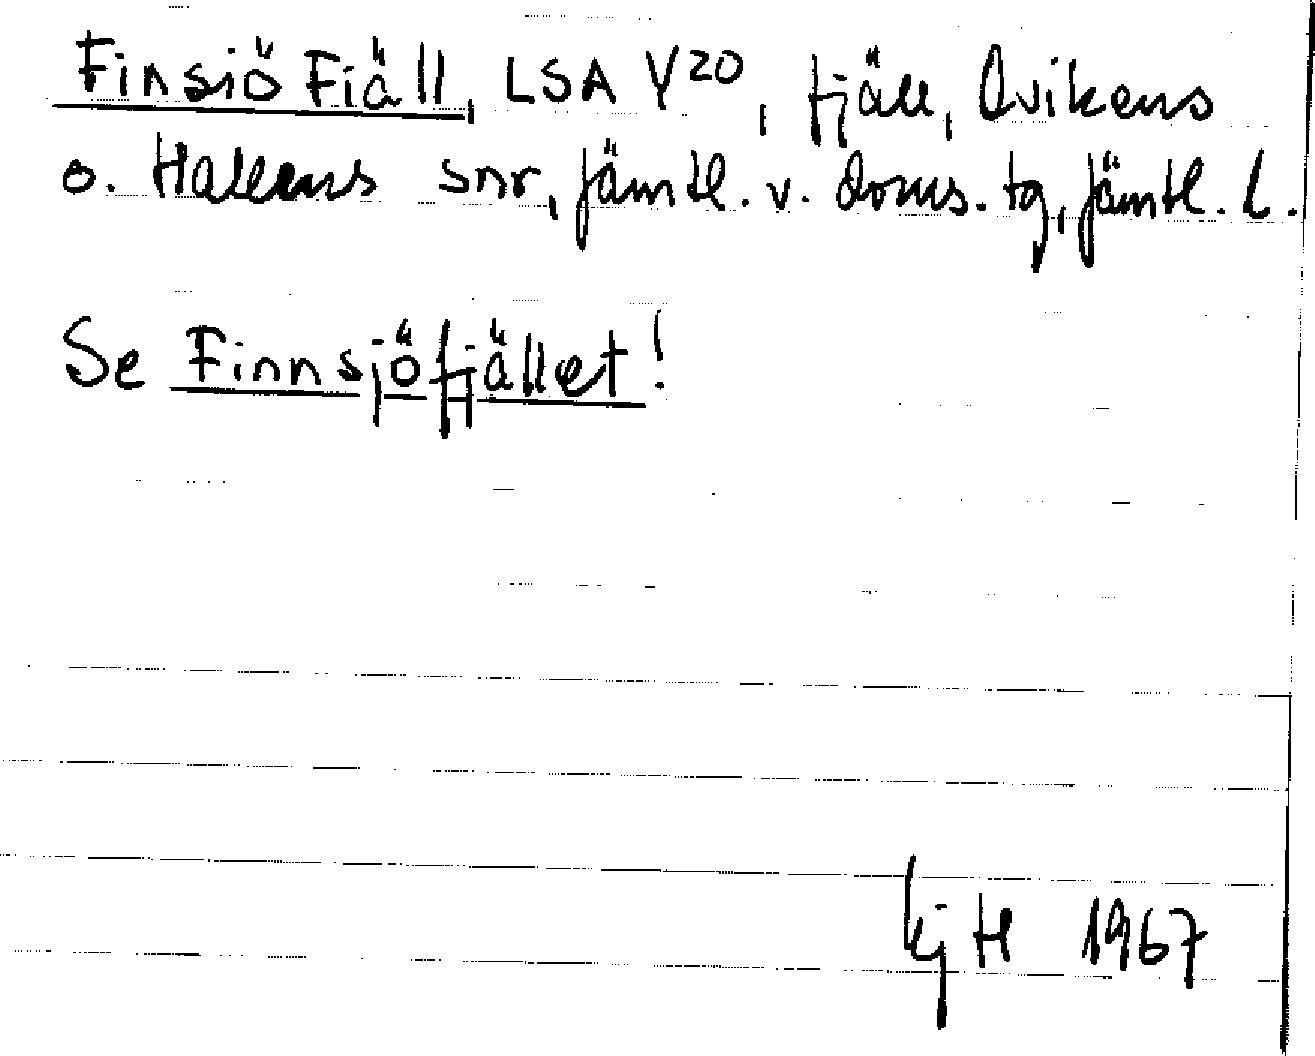 Finsiö Fiäll, LSA Y20, fjäll, Ovikens
o. Hallens snr, Jämtl. v. doms. tg, Jämtl. l.
Se Finnsjöfjället!
KjH 1967